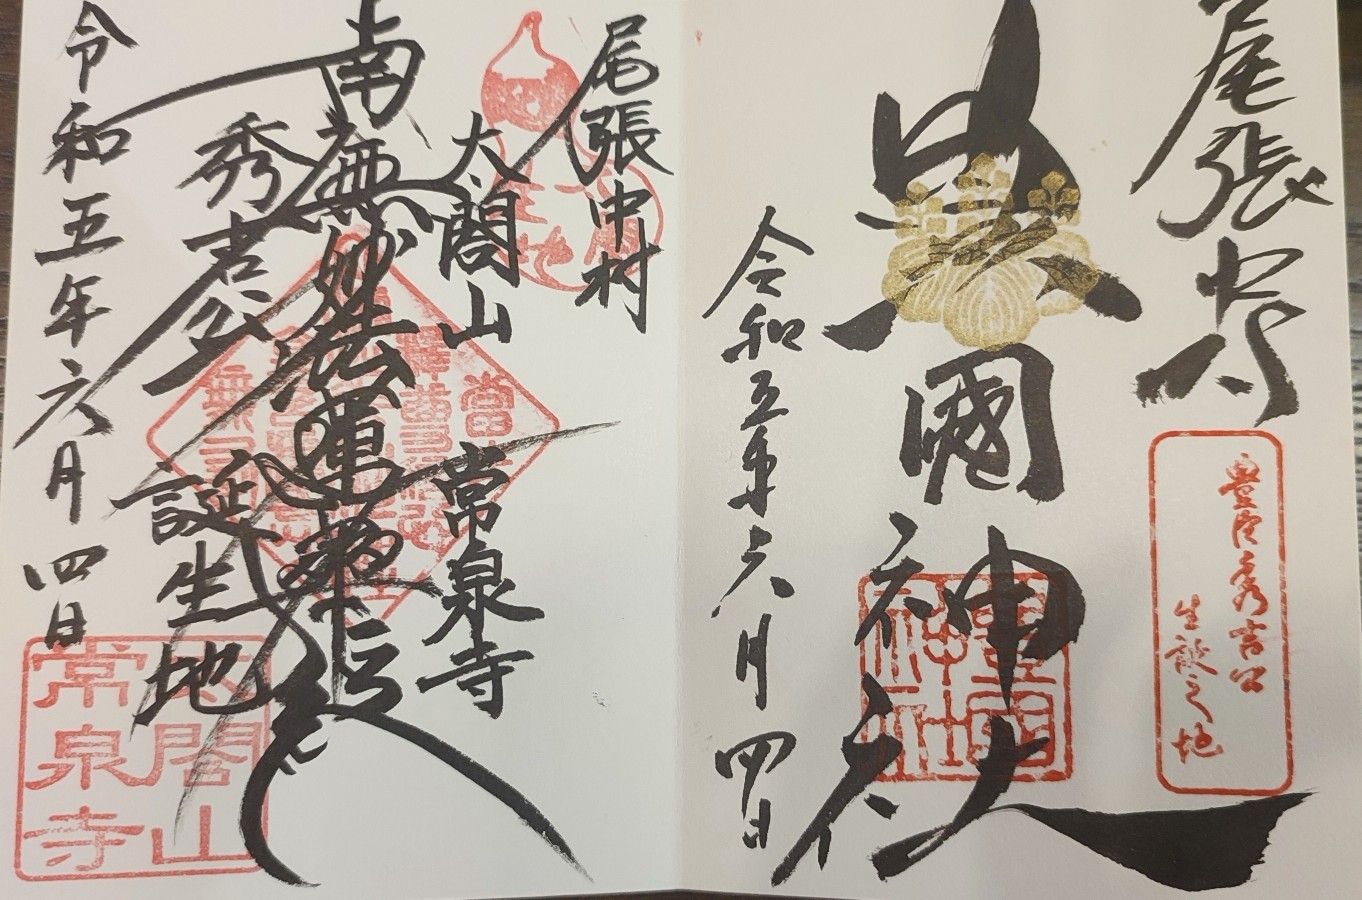 尾張中村
豊臣秀吉公
生誕之地
豊國神社
豊國神社
令和五年六月四日
尾張中村
太閤山 常泉寺
南無妙法蓮華経
秀吉公 誕生地
令和五年六月四日
太閤山
常泉寺